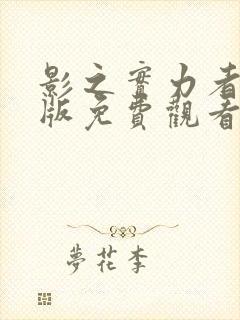 影之實力者
版免費觀看
夢花李